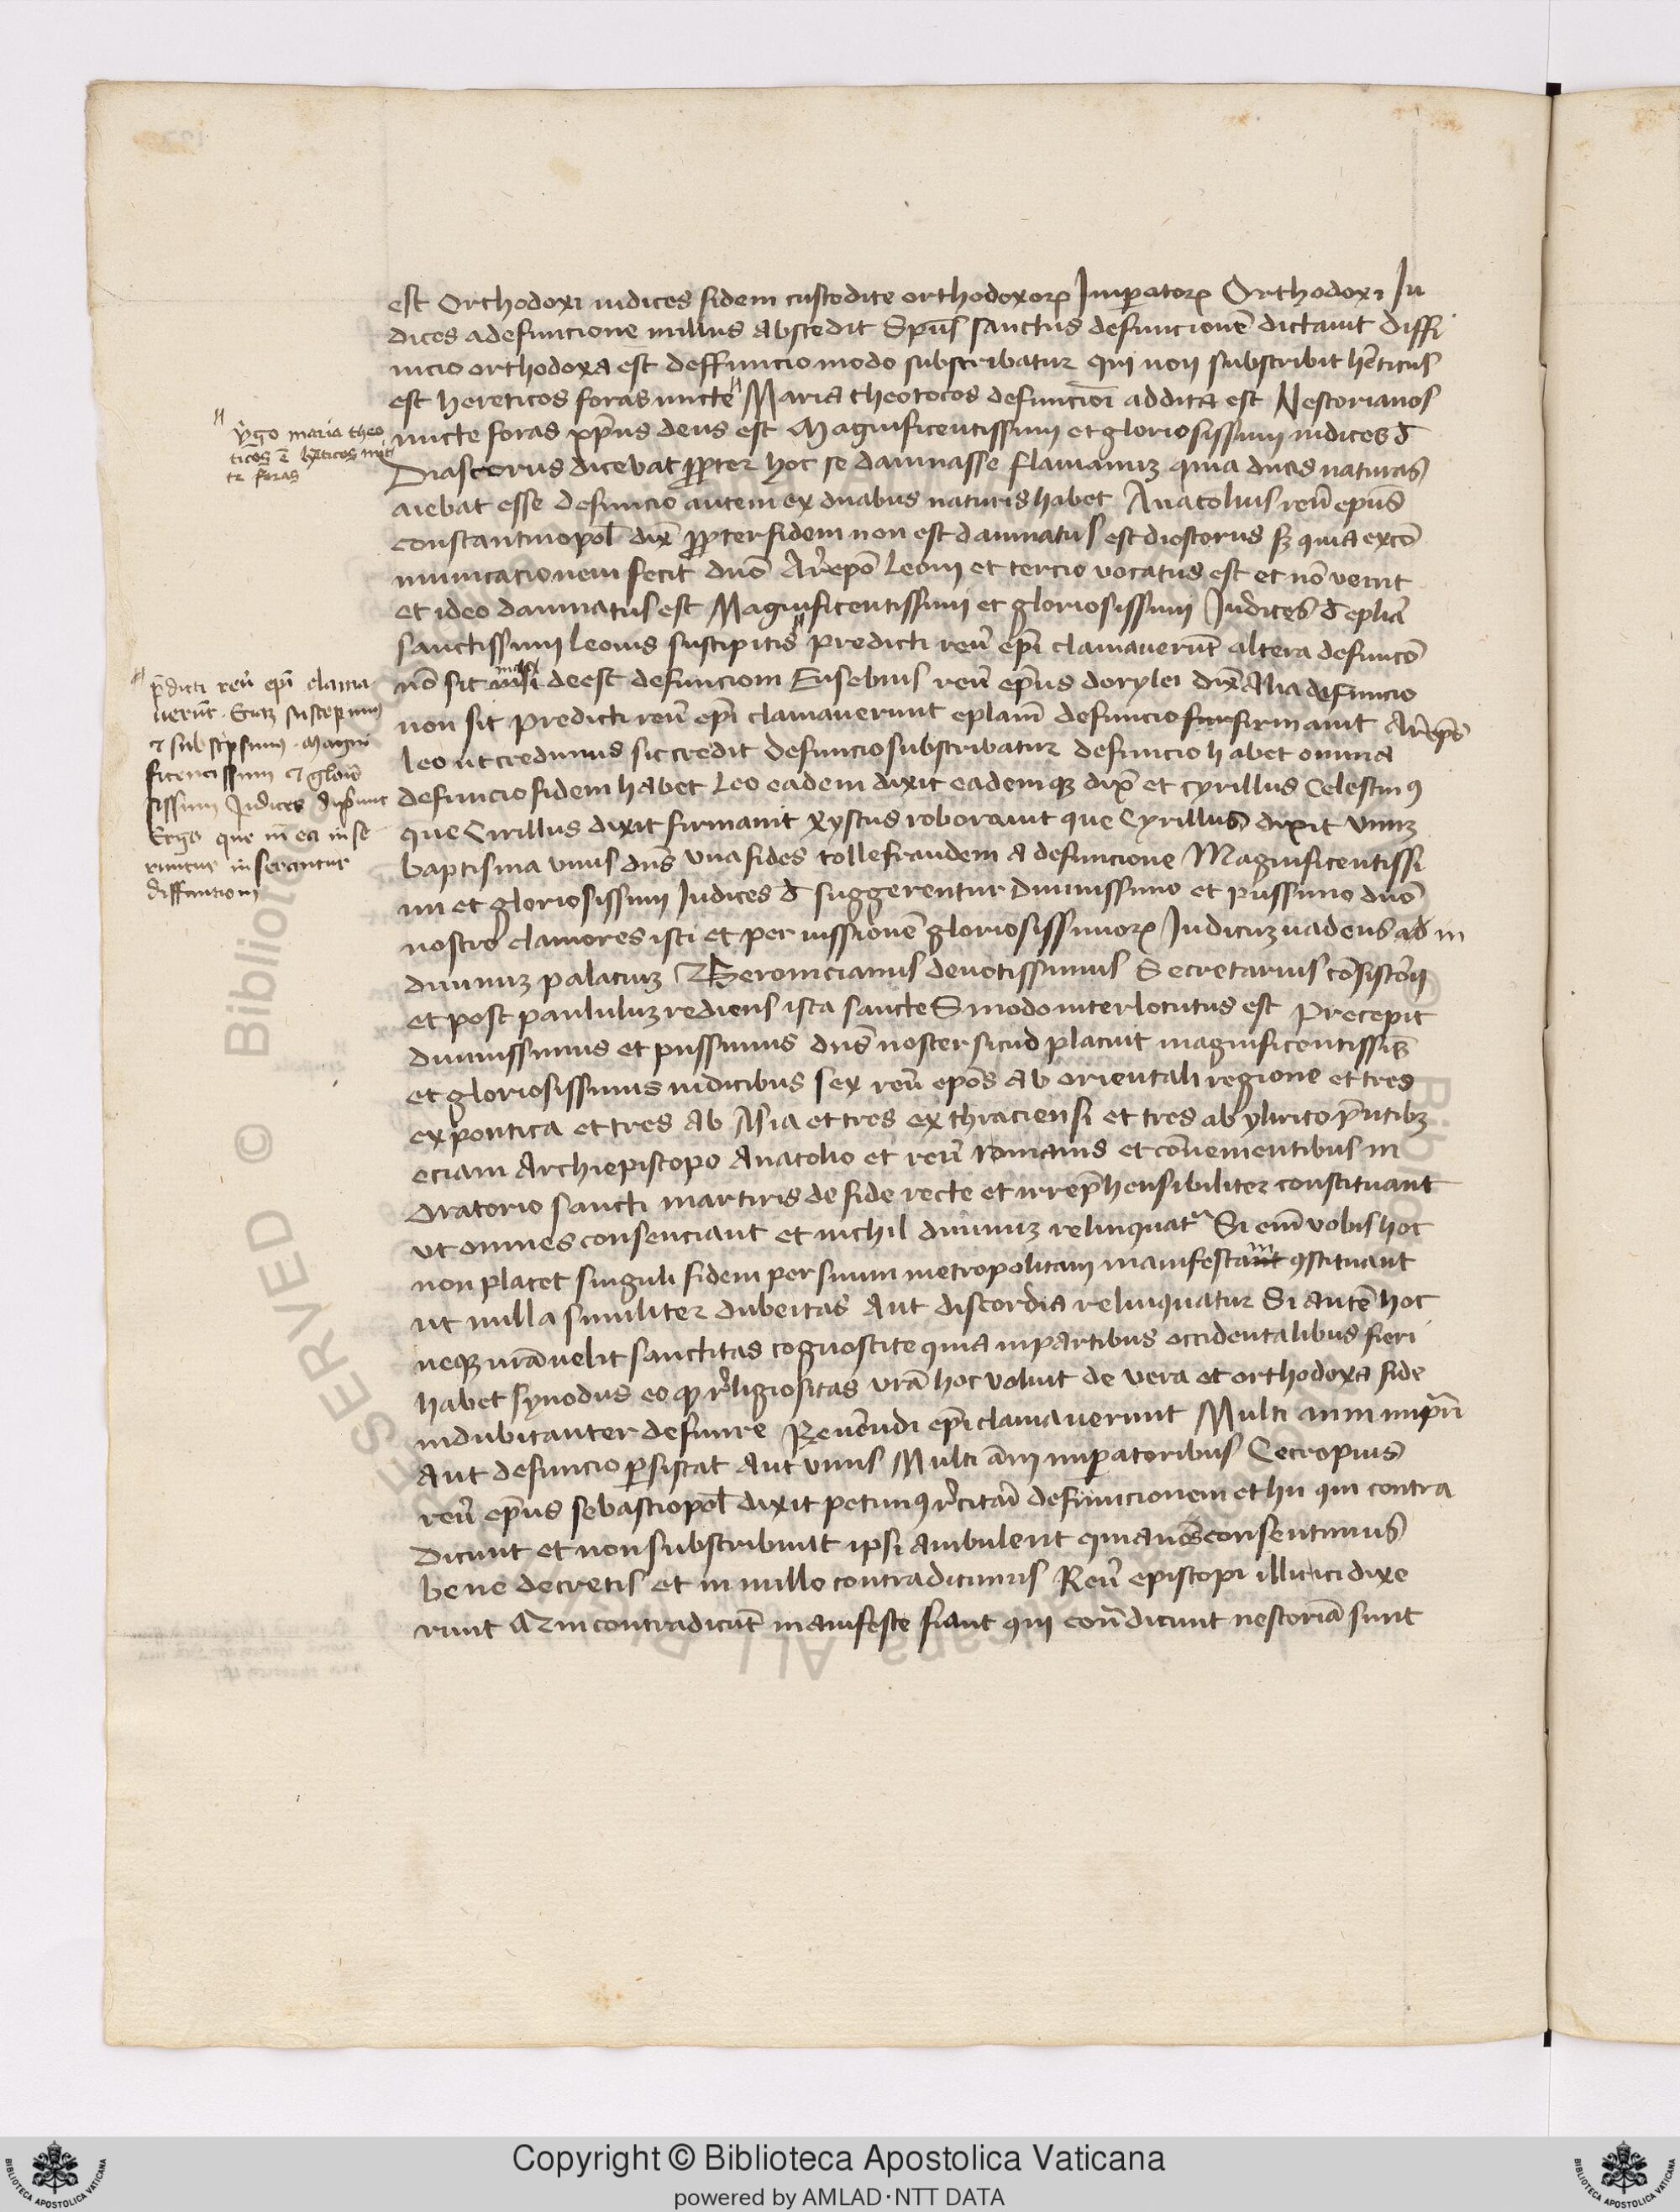 est Orthodoxi iudices fidem custodite orthodoxorꝝ Imꝑatorꝝ Orthodoxi Iu
dices a definicione nullus abscedit Spūs sanctus definicionē dictauit diffi
nicio orthodoxa est deffinicio modo subscribatur qui non subscribit hēticus
est hereticos foras mitte " Maria theotocos definicioī addita est Nestorianos
mitte foras xp̄us deus est Magnificentissimi et gloriosissimi iudices đ
Diascorus dicebat ꝓpter hoc se damnasse flauianuꝫ quia duas naturas
aiebat esse definicio autem ex duabus naturis habet Anatolius reū epūs
constantinopol̄ dix̄ ꝓpter fidem non est damnatus est dioscorus sꝫ quia excō
municacionem fecit dnō Arēpō Leoni et tercio vocatus est et nō venit
et ideo damnatus est Magnificentissimi et gloriosissimi Judices đ eplām
sanctissimi leonis suscipitis " predicti reū ep̄i clamauerūt altera definicō
nō sit nisi deest definiciom Eusebius reū ep̄us dorylei dix̄ Alia definicio
non sit predicti reū ep̄i clamauerunt eplam̄ definicio firmauit Arēp̄s
leo ut credimus sic credit definicio subscribatur definicio habet omnia
definicio fidem habet Leo eadem dixit eademqꝫ dix̄ et cyrillus Celestinꝯ
que Cirillus dixit firmauit xystus roborauit que Cyrillus dixit vnuꝫ
baptisma vnus dn̄s vna fides tolle fraudem a definicione Magnificentissi
mi et gloriosissimi Iudices đ suggerentur Diuinissimo et piissimo dnō
nostro clamores isti et per iussionē gloriosissimorꝝ Iudicuꝫ uadens ad in
diuinuꝫ palaciuꝫ Beronicianus deuotissimus Secretarius cōsistorij
et post paululuꝫ rediens ista sancte Sinodo interlocutus est Precepit
diuinissimus et piissimus dn̄s noster sicud placuit magnificentissīs
et gloriosissimis iudicibus sex reū epōs ab orientali regione et tres
ex pontica et tres ab Asia et tres ex thraciensi et tres ab ylirico p̄ntibꝫ
eciam Archiepiscopo Anatolio et reū romanis et cōuenientibus in
oratorio sancti martiris de fide recte et irrep̄hensibiliter constituant
vt omnes consenciant et nichil dubiuꝫ relinquatr Si eni̅ vobis hoc
non placet singuli fidem per suum metropolitam manifestam ꝯstituant
ut nulla similiter dubietas aut discordia relinquatur Si autē hoc
neqꝫ vrā uelit sanctitas cognoscite quia in partibus occidentalibus fieri
habet synodus eo qꝫ rēligiositas vrā hoc voluit de vera et orthodoxa fide
indubitanter definire Reuēndi ep̄i clamauerunt Multi anni impr̄i
Aut definicio ꝑsistat aut vnus Multi an̄i imꝑatoribus Cecropius
reū ep̄us sebastiopol̄ dixit petimꝯ rēcitari definicionem et hii qui contra
dicunt et non subscribunt ipsi ambulent quia nos consentimus
bene decretis et in nullo contradicimus Reū episcopi illirici dixe
runt Qui contradicūt manifeste fiant qui contr̄dicunt nestoriā sunt
" vr̄go maria theo
ticos ē hēticos mit
te foras
" p̄dicti reū ep̄i clama
uerūt Eius suscepimꝯ
⁊ subscͥpsimꝯ Magni
ficencissimi ⁊ glorio
sissimi Judices dixer̄unt
Ergo que in ea inse
runtur inserantur
diffinitioni
Copyright © Biblioteca Apostolica Vaticana
powered by AMLAD·NTT DATA